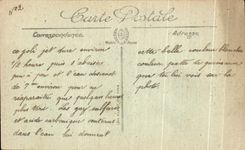 N°2
Carte Postale
Correspondance
Adresse
ce joli jet dure environ
1/2 heure puis s'abaisse
peu à peu et l'eau descend
de 7 mètres environ pour ne
réapparaître que quelques heures
plus tard. Les gaz sulfureux
et acide carbonique contenus
dans l'eau lui donnent
cette belle couleur blanche
couleur
que tu lui vois sur la
photo.